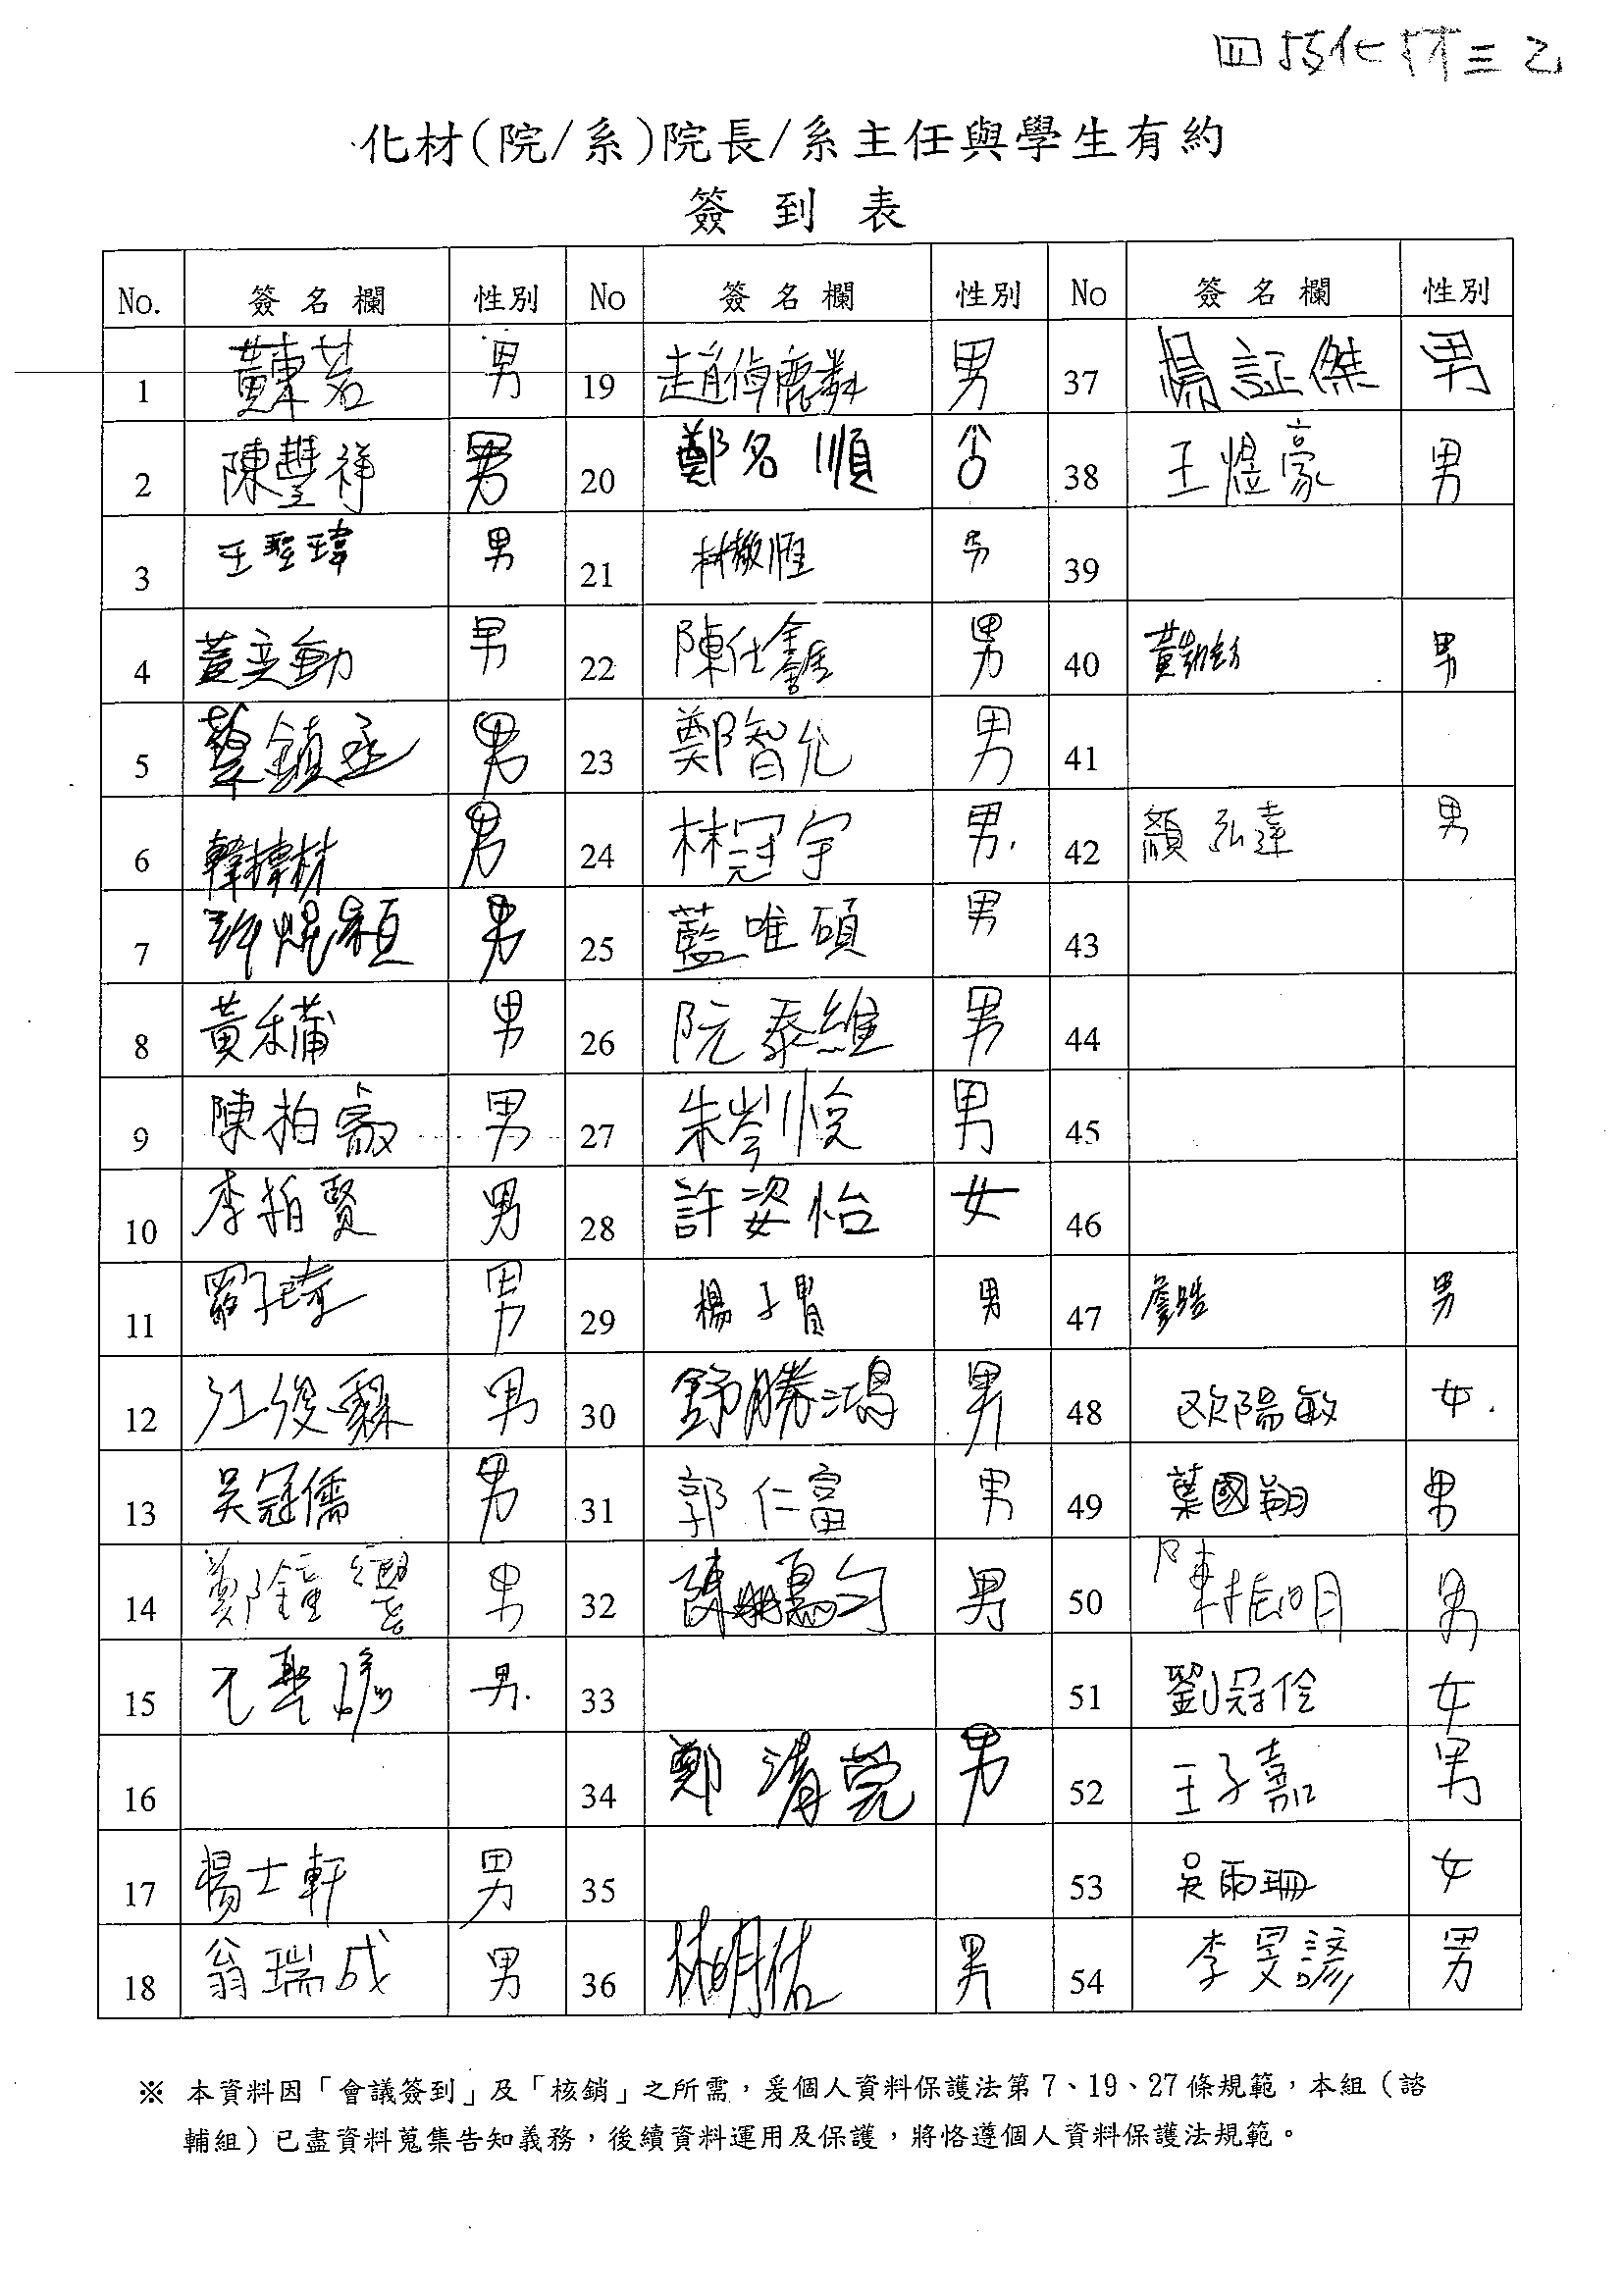 四技化材三乙
化材(院/系)院長/系主任與學生有約
簽到表
No. 簽名欄 性別 No 簽名欄 性別 No 簽名欄 性別
1 黃東茗 男 19 趙偉麟 男 37 楊証傑 男
2 陳豐祥 男 20 鄭名順 ♂ 38 王煜豪 男
3 王聖瑋 男 21 林敬恆 男 39
4 男 22 陳仕鑫 男 40 黃 男
5 蔡鎮丞 男 23 鄭智允 男 41
6 男 24 林冠宇 男. 42 顏弘達 男
7 許焜穎 男 25 藍唯碩 男 43
8 黃 男 26 阮泰維 男 44
9 陳柏 男 27 朱岑悅 男 45
10 李柏賢 男 28 許姿怡 女 46
11 羅子琦 男 29 楊子賢 男 47 詹皓 男
12 江俊霖 男 30 舒勝鴻 男 48 欧陽敏 女.
13 吳冠儒 男 31 郭仁富 男 49 葉國翔 男
14 鄭鐘 男 32 陳 男 50 陳振明 男
15 男. 33 51 劉冠伶 女
16 34 鄭清莞 男 52 王子嘉 男
17 楊士軒 男 35 53 吳雨珊 女
18 翁瑞成 男 36 林明佑 男 54 李旻諺 男
※ 本資料因「會議簽到」及「核銷」之所需，爰個人資料保護法第 7、19、27 條規範，本組（諮
輔組）已盡資料蒐集告知義務，後續資料運用及保護，將恪遵個人資料保護法規範。